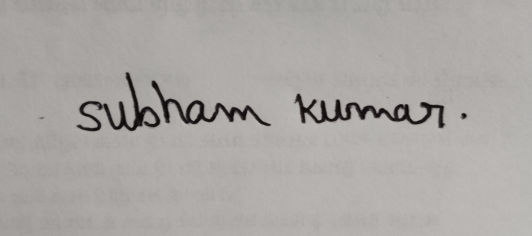 subham kumar.